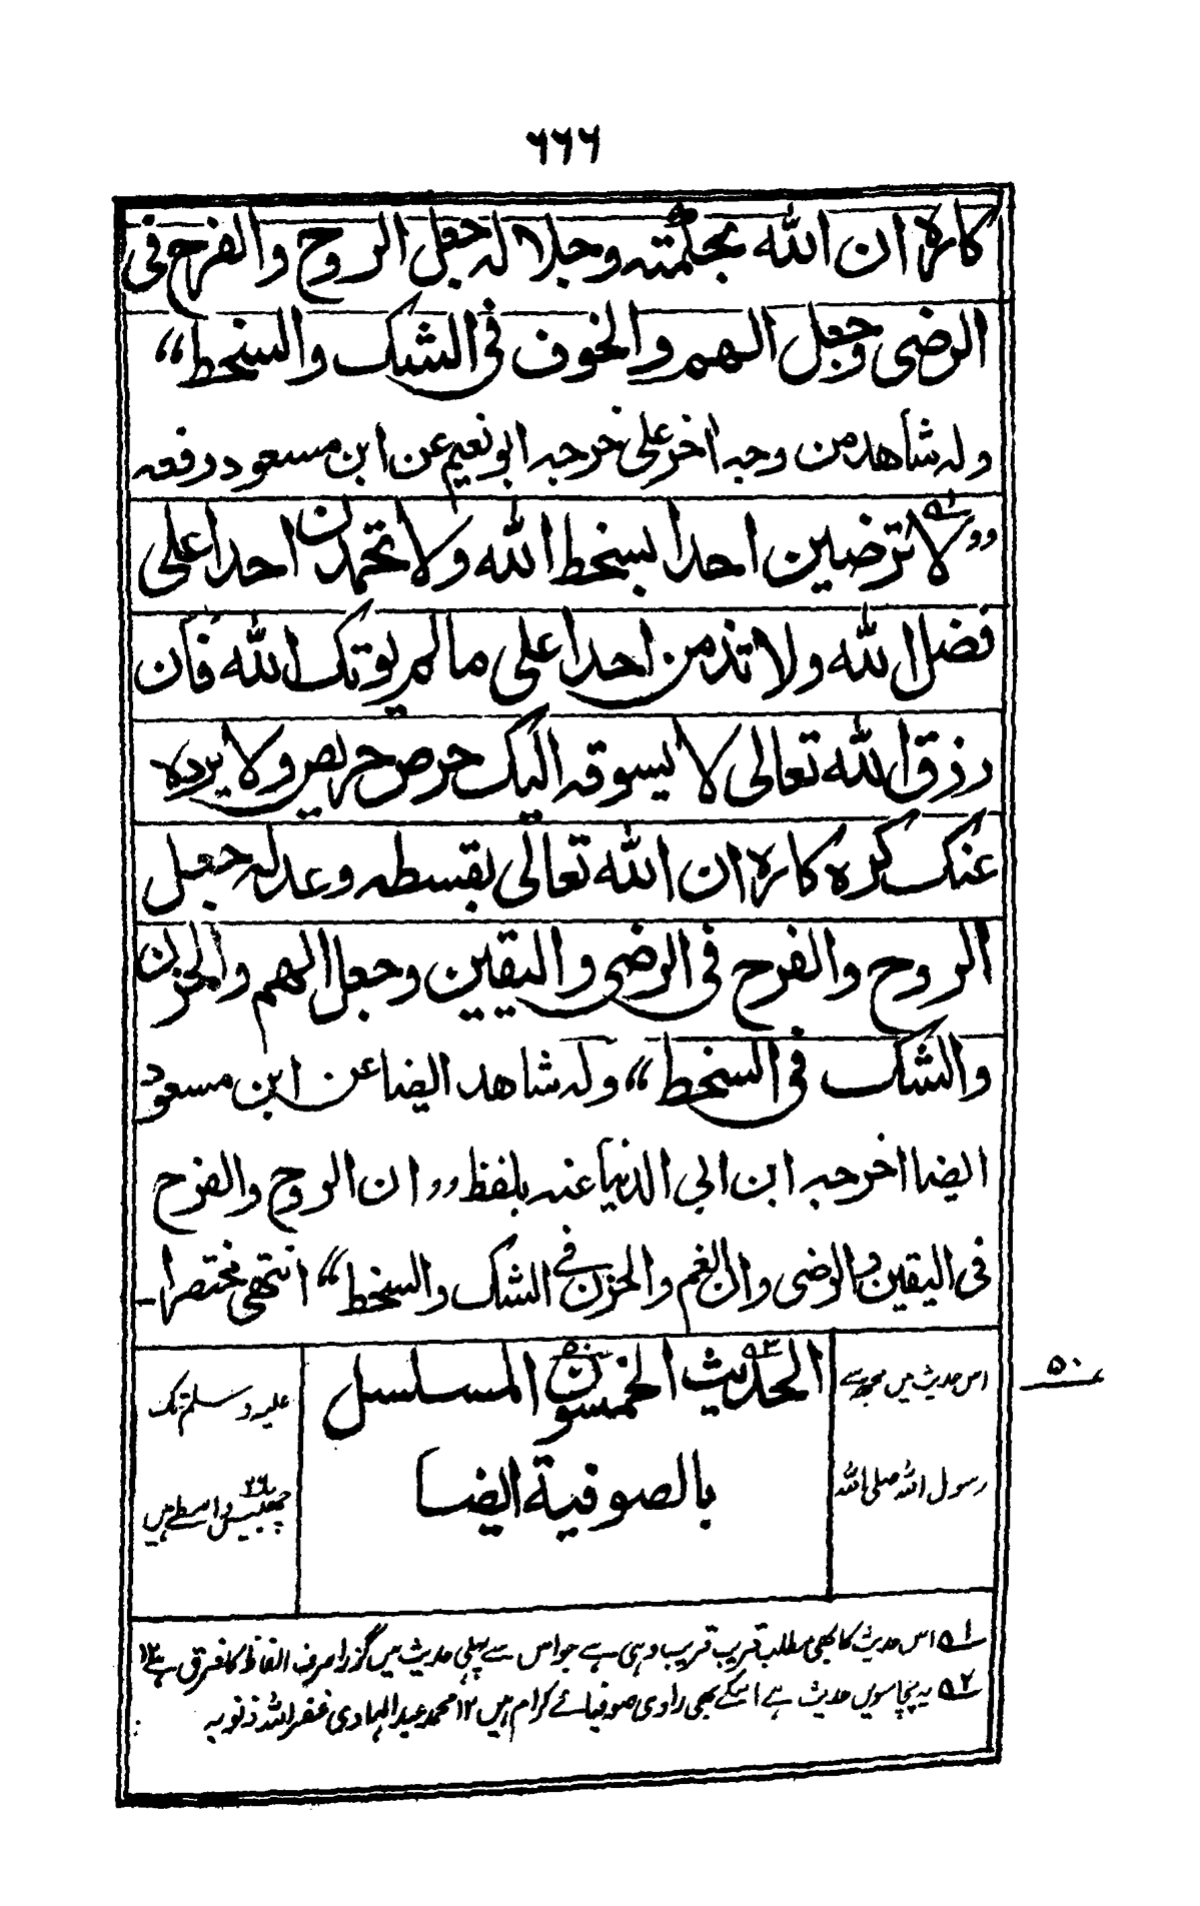 ٦٦٦
كاره ان الله بحكمته وجلاله جعل الروح والفرح فی
الرضی وجعل الهم والخوف فی الشك والسخط“
وله شاهد من وجه اخر علی خرجه ابو نعیم عن ابن مسعود رفعه
”لا ترضین احدا بسخط الله ولا تحمدن احدا علی
فضل الله ولا تذمن احدا علی ما لم یوتك الله فأن
رزق الله تعالی لا یسوقه الیك حرص حریص ولا یرده
عنك كره كاره ان الله تعالی بقسطه وعدله جعل
الروح والفرح فی الرضی والیقین وجعل الهم والحزن
والشك فی السخط“ وله شاهد ایضا عن ابن مسعود
ایضا اخرجه ابن ابی الدنیا عنه بلفظ ”ان الروح والفرح
فی الیقین والرضی وان الغم والحزن فی الشك والسخط“ انتهی مختصرا۔
الحدیث الخمسون المسلسل
بالصوفیة ایضا
اس حدیث میں مجھ سے
رسول اللہ صلی اللہ
علیہ وسلم تک
چھبیس واسطے ہیں
۵۰
۱ اس حدیث کا بھی مطلب قریب قریب وہی ہے جو اس سے پہلی حدیث میں گزرا صرف الفاظ کا فرق ہے ۱۲
۲ یہ پچاسویں حدیث ہے اسکے بھی راوی صوفیائے کرام ہیں ۱۲ محمد عبد الہادی غفر اللہ ذنوبہ